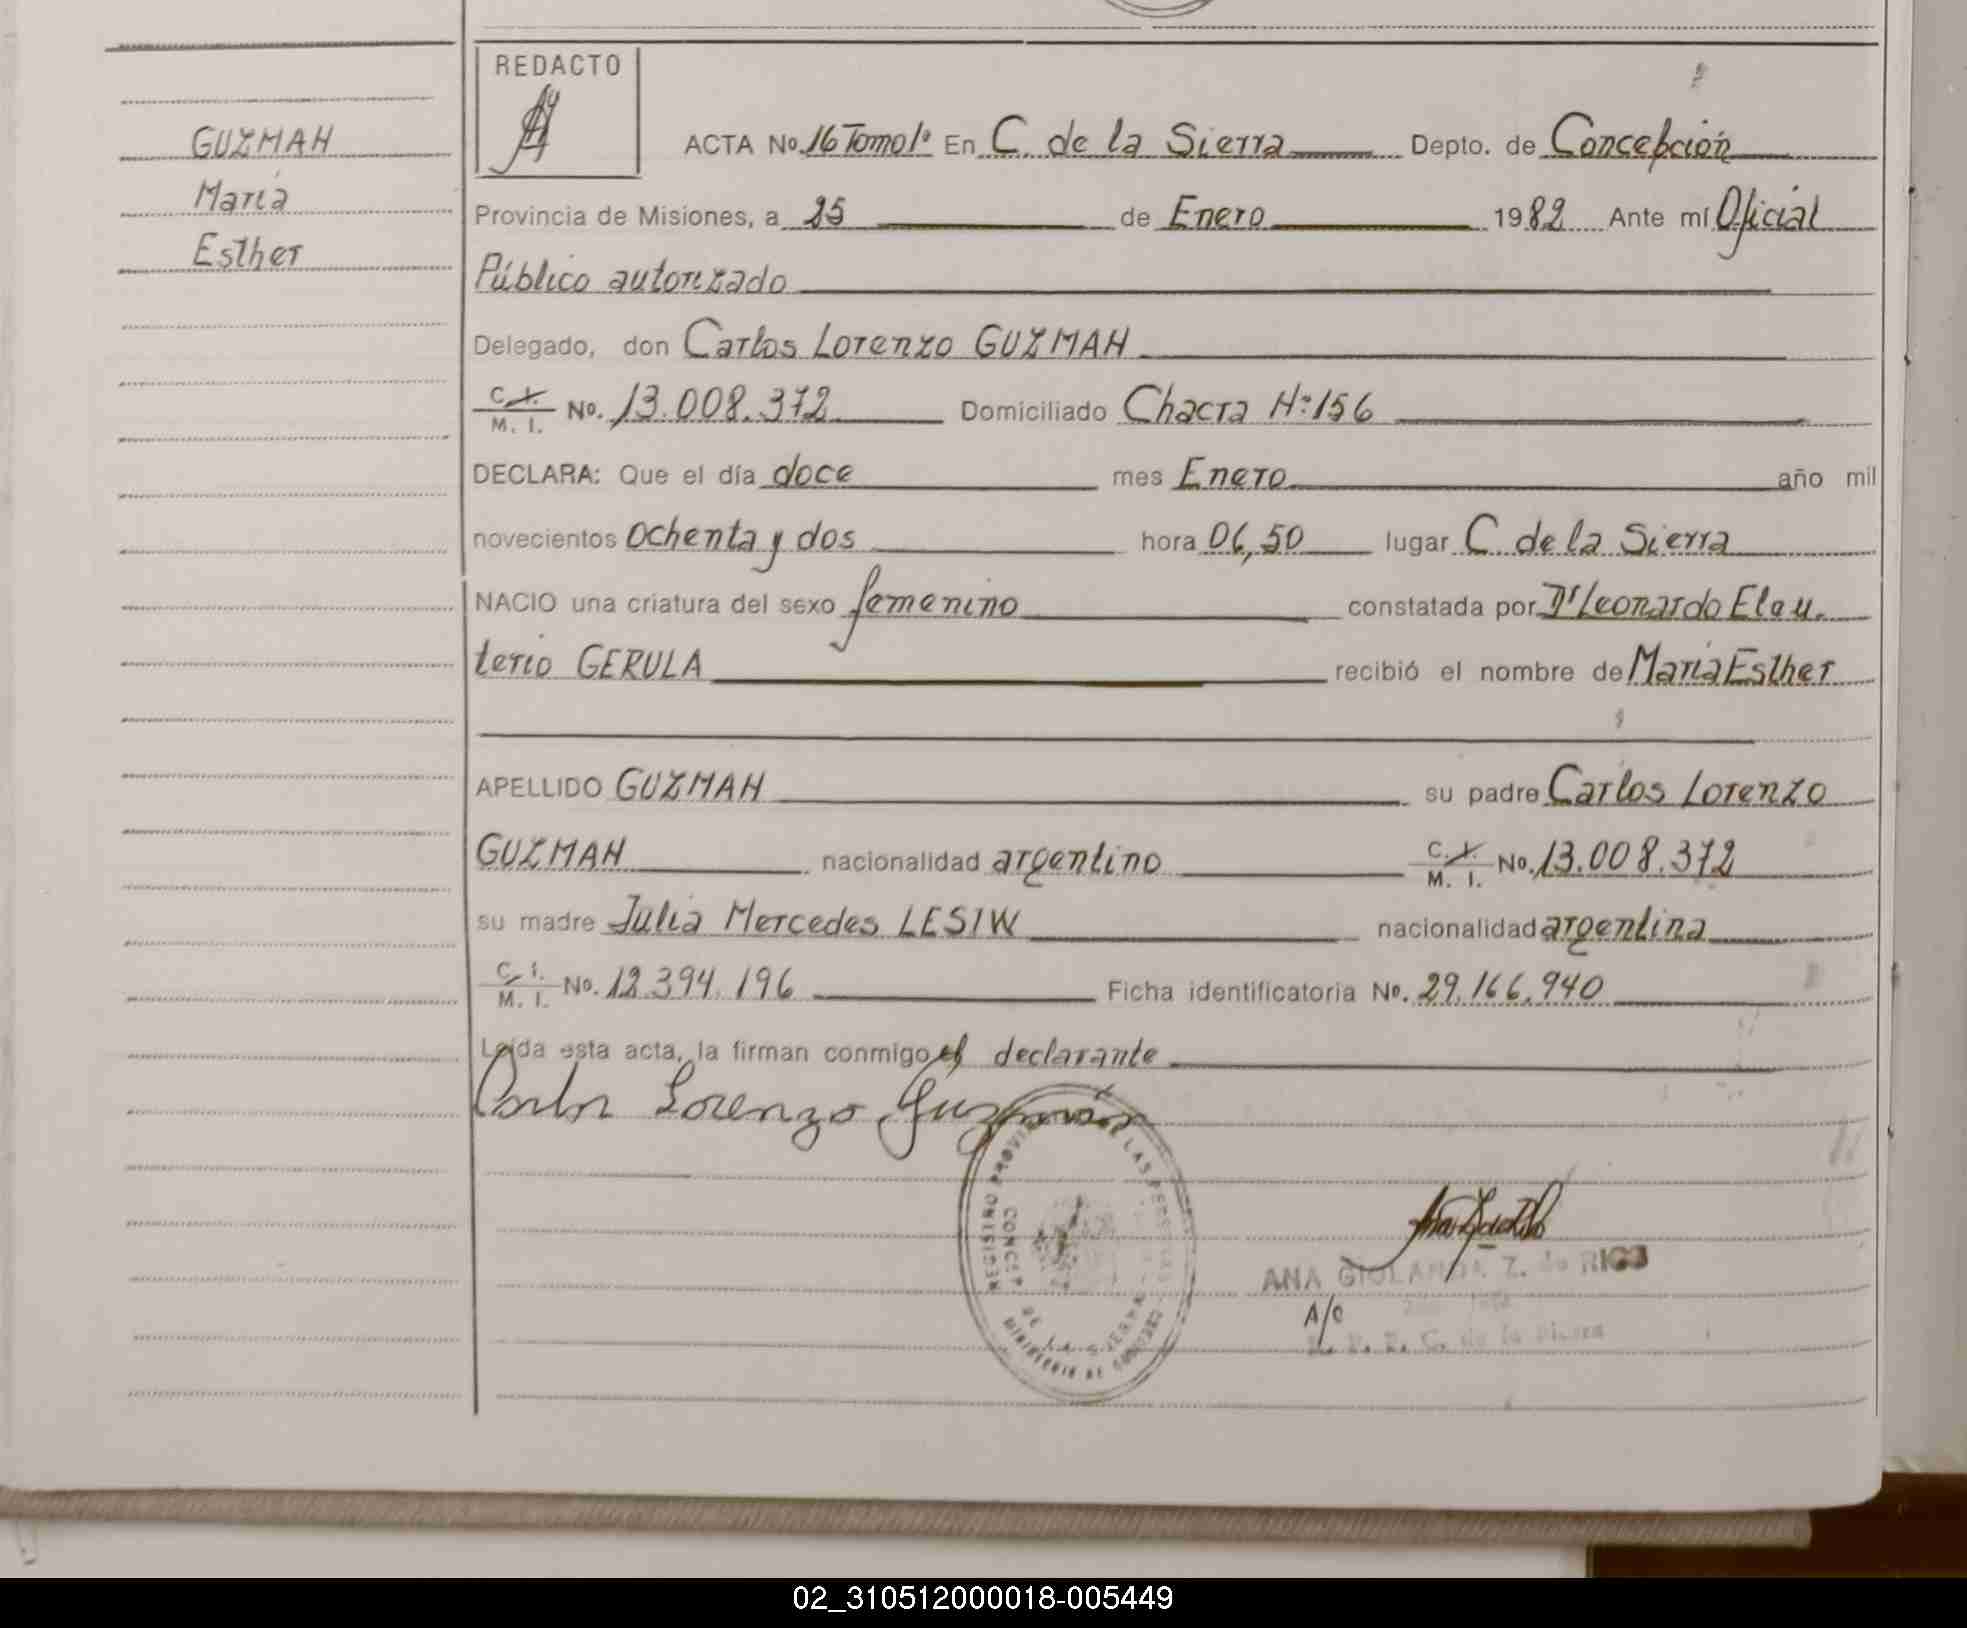 REDACTO
GUZMAN
María
Esther
ACTA No. 16 Tomo 1º En C. de la Sierra Depto. de Concepción
Provincia de Misiones, a 25 de Enero 1982 Ante mí Oficial
Público autorizado
Delegado, don Carlos Lorenzo GUZMAN
C. I. M. I. No. 13.008.372 Domiciliado Chacra Nº 156
DECLARA: Que el día doce mes Enero año mil
novecientos ochenta y dos hora 06,50 lugar C. de la Sierra
NACIO una criatura del sexo femenino constatada por Dr Leonardo Eleu-
terio GERULA recibió el nombre de María Esther
APELLIDO GUZMAN su padre Carlos Lorenzo
GUZMAN nacionalidad argentino C. I. M. I. No. 13.008.372
su madre Julia Mercedes LESIW nacionalidad argentina
C. I. M. I. No. 12.394.196 Ficha identificatoria No. 29.166.940
Leída esta acta, la firman conmigo el declarante
Carlos Lorenzo Guzmán
REGISTRO CONCEP DE LA SIERRA MINISTERIO DE GOBIERNO
ANA Z. de
A/C
de la Sierra
02_310512000018-005449